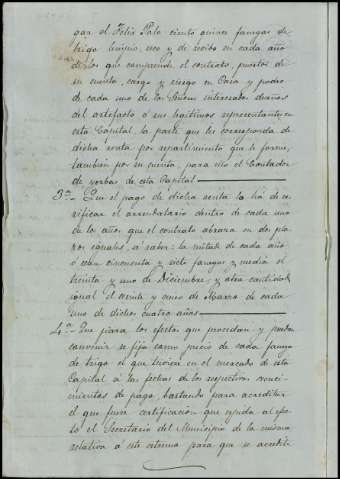 gar el Felix Polo ciento quince fanegas de
trigo limpio, seco y de recibo en cada año
de los que comprende el contrato, puestos de
su cuenta, cargo y riesgo en Casa y poder
de cada uno de los Señores interesados dueños
del artefacto ó sus legitimos representantes en
esta Capital, la parte que les corresponda de
dicha renta por repartimiento que le forme,
tambien por su cuenta, para ello el Contador
de yerbas de esta Capital
3ª- Que el pago de dicha renta lo há de ve-
rificar el arrendatario dentro de cada uno
de los años que el contrato abraza en dos pla-
zos iguales, á saber: la mitad de cada año
ó sean cincuenta y siete fanegas y media el
treinta y uno de Diciembre, y otra cantidad
igual el veinte y cinco de Marzo de cada
uno de dichos cuatro años
4ª- Que para los efectos que procedan y pueda
convenir se fija como precio de cada fanega
de trigo el que tuviere en el mercado de esta
Capital á las fechas de los respectivos venci-
mientos de pago, bastando para acreditar
el que fuere certificacion que expida al efec-
to el Secretario del Municipio de la misma
relativa á este estremo para que se acredite